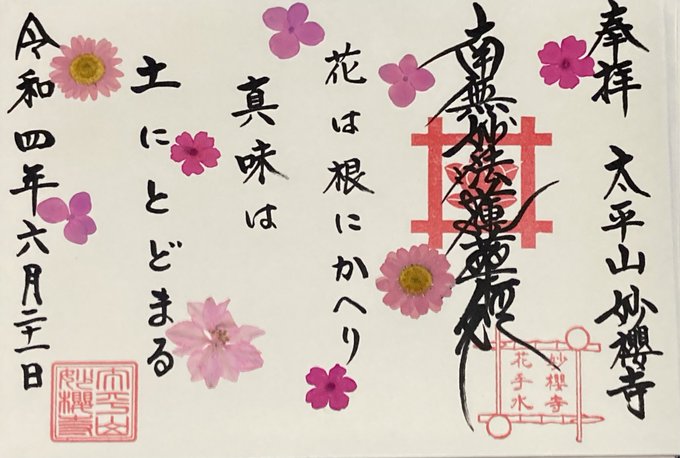 奉拝 太平山妙櫻寺
南無妙法蓮華経
花は根にかへり
真味は
土にとどまる
令和四年六月二十一日
妙櫻寺
花手水
太平山
妙櫻寺